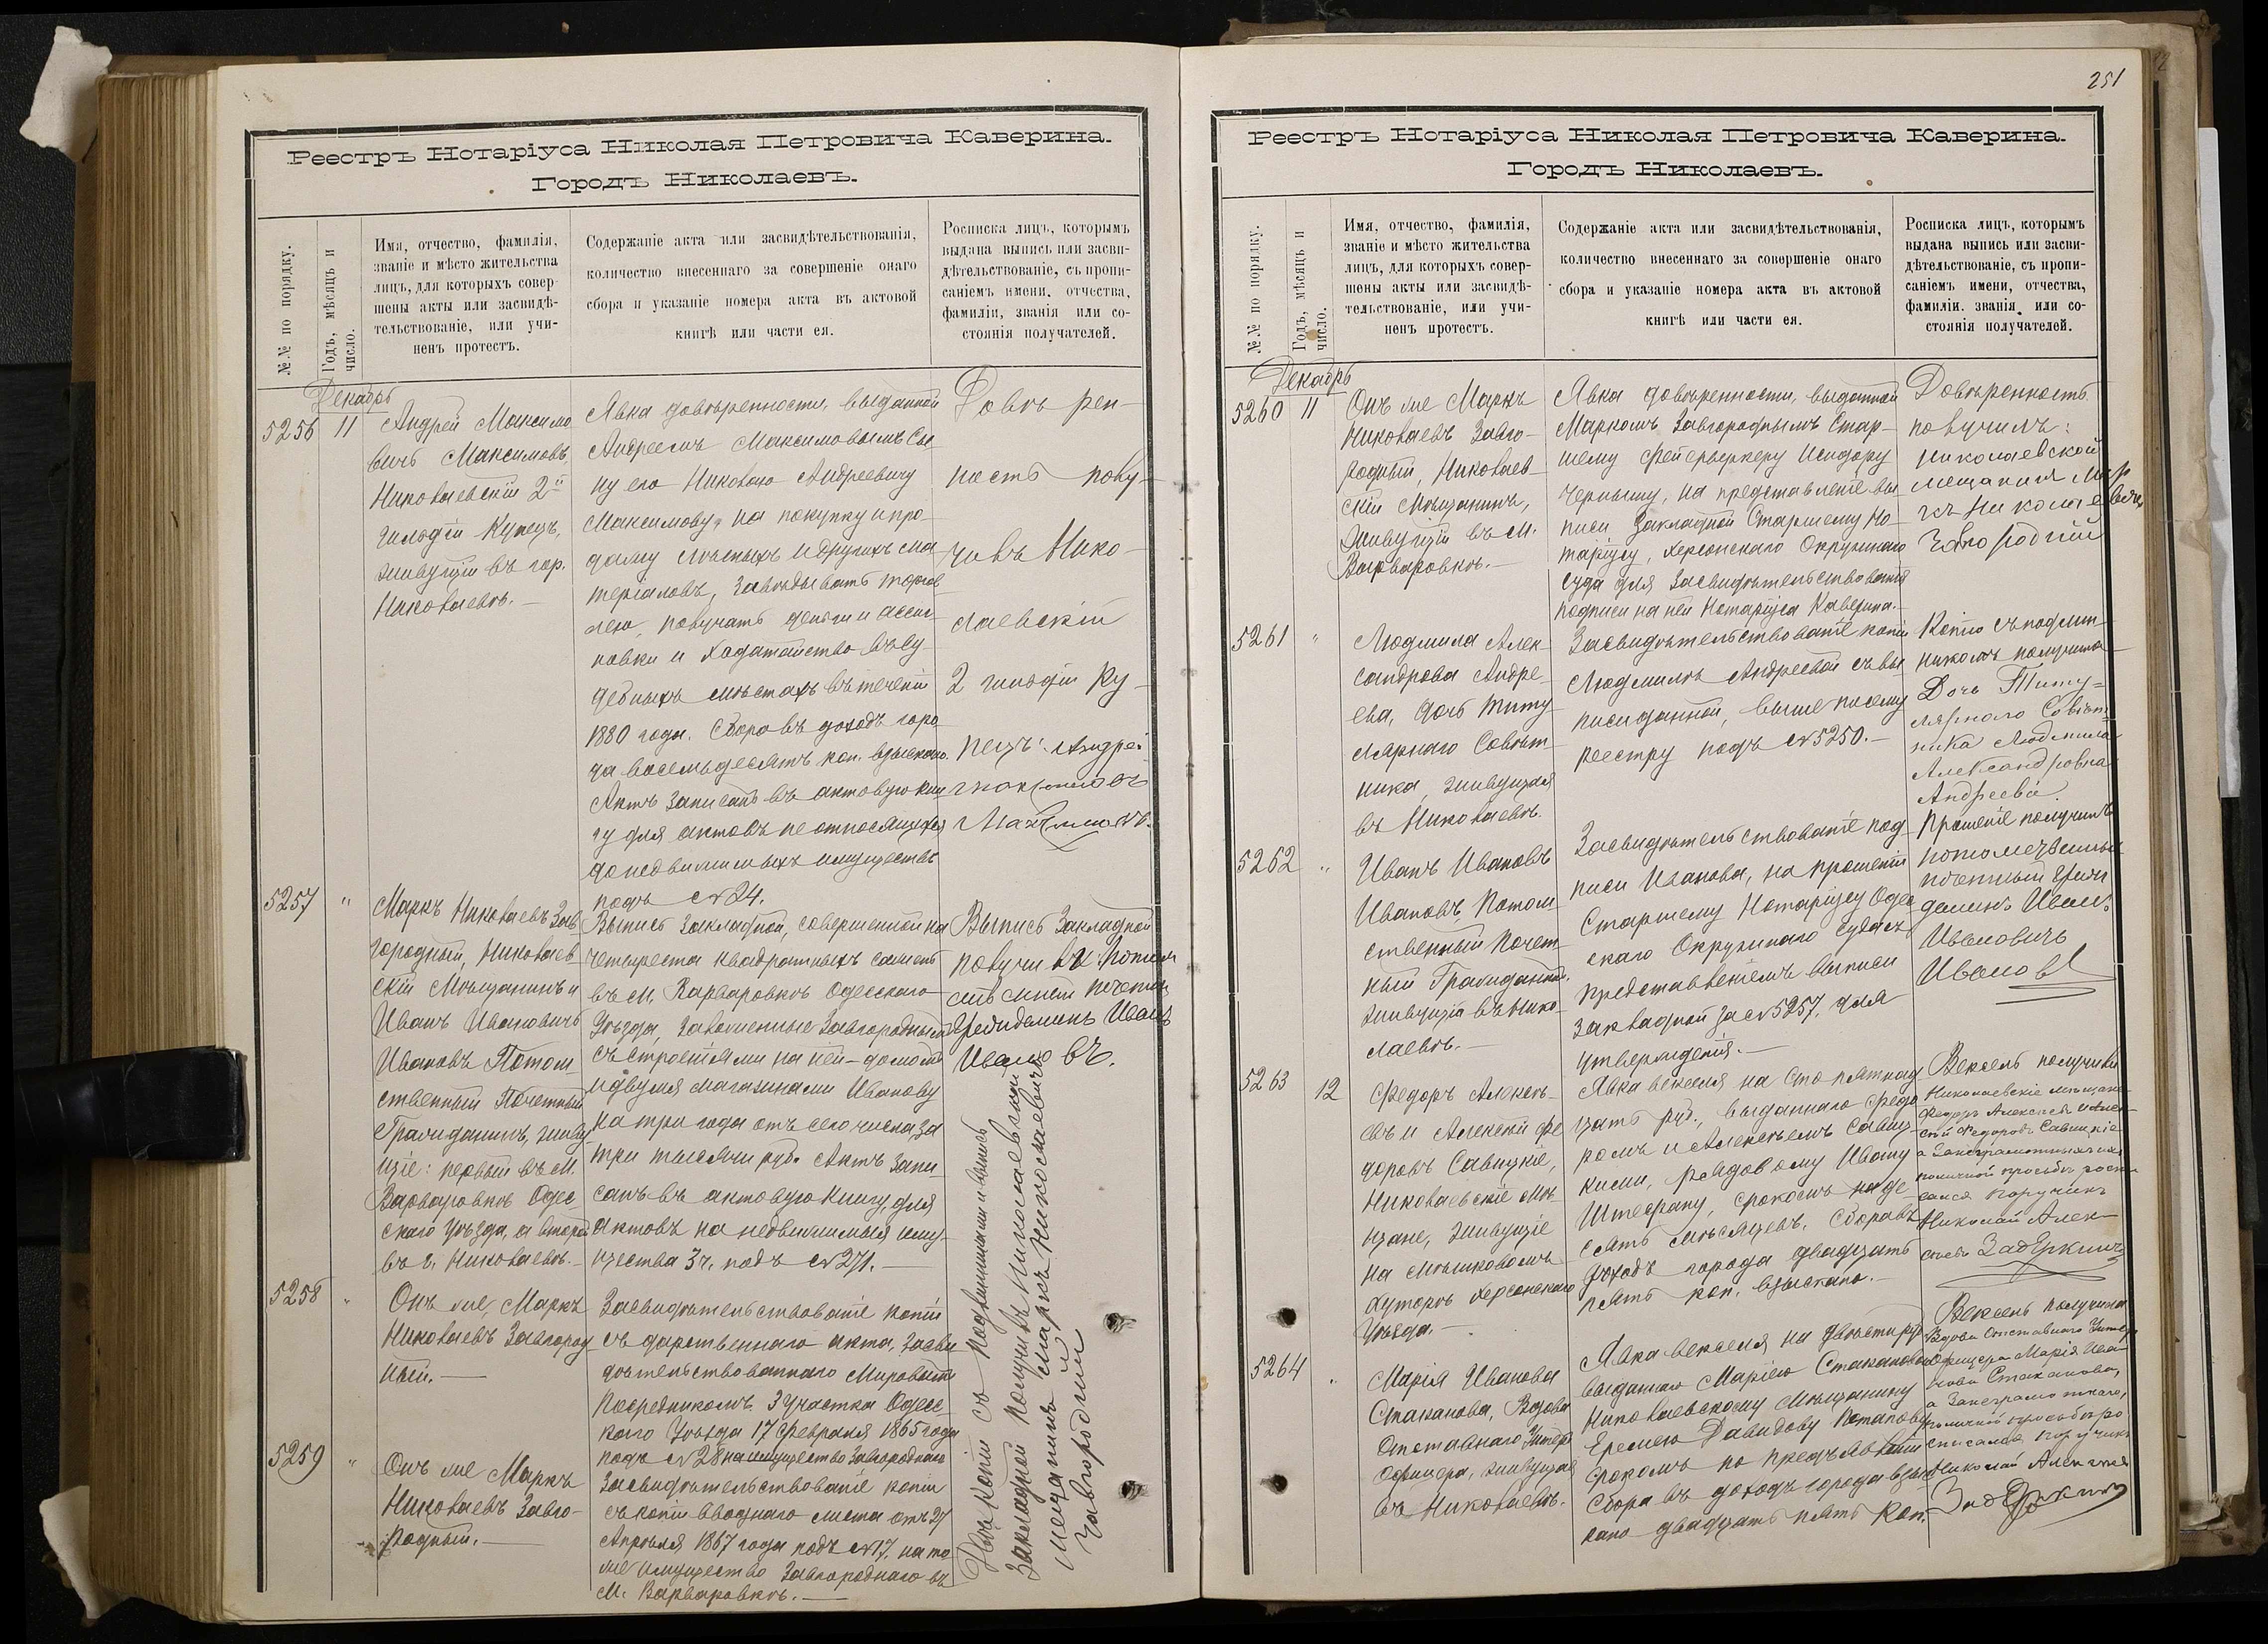 Реестръ Нотаріуса Николая Петровича Каверина.
Городъ Николаевъ.
№№ по порядку.
Годъ, мѣсяцъ и число.
Имя, отчество, фамилія,
званіе и мѣсто жительства
лицъ, для которыхъ совер-
шены акты или засвидѣ-
тельствованіе, или учи-
ненъ протестъ.
Содержаніе акта или засвидѣтельствованія,
количество внесеннаго за совершеніе онаго
сбора и указаніе номера акта въ актовой
книгѣ или части ея.
Росписка лицъ, которымъ
выдана выпись или засви-
дѣтельствованіе, съ пропи-
саніемъ имени, отчества,
фамиліи, званія или со-
стоянія получателей.
Декабрь
5256 11
Андрей Максимо
вичъ Максимовъ,
Николаевскій 2й
гильдіи Купецъ,
живущій въ гор.
Николаевѣ.—
Явка довѣренности, выданной
Андреемъ Максимовымъ Сы
ну его Николаю Андреевичу
Максимову, на покупку и про
дажу лѣсныхъ и другихъ ма
теріаловъ, завѣдывать торгов
лею, получать деньги и ассиг
новки и ходатайство въ су
дебныхъ мѣстахъ въ теченіи
1880 года. Сбора въ доходъ горо
да восемьдесятъ коп. взыскано.
Актъ записанъ въ актовую кни
гу для актовъ не относящихся
до недвижимыхъ имуществъ
подъ №24.
Довѣ рен-
ность полу-
чивъ Нико-
лаевскій
2 гильдіи Ку-
пецъ Андрей
Максимовъ.
5257 "
Маркъ Николаевъ Зав
городный, Николаев
скій Мѣщанинъ и
Иванъ Ивановичъ
Ивановъ Потом
ственный Почетный
Гражданинъ, живу
щіе: первый въ м.
Варваровкѣ Одес
скаго уѣзда, а второй
въ г. Николаевѣ.—
Выпись Закладной, совершенной на
четыреста квадратныхъ сажень
въ м. Варваровкѣ Одесскаго
Уѣзда, заложенные Завгороднымъ
съ строеніями на ней — домомъ
и двумя магазинами Иванову
на три года отъ сего числа за
три тысячи руб. Актъ запи
санъ въ актовую книгу, для
актовъ на недвижимыя иму-
щества 3 ч. подъ №271.—
Выпись Закладной
получивъ Потом
ственный почетны
Гражданинъ Иванъ
Ивановъ.
5258 "
Онъ же, Маркъ
Николаевъ Завгород
ный.—
Засвидѣтельствованіе копіи
съ дарственнаго акта, засви
дѣтельствованнаго Мировымъ
Посредникомъ 3 участка Одес
скаго Уѣзда 17 Февраля 1865 года
подъ №28 на имущество Завгороднаго
5259 "
Онъ же Маркъ
Николаевъ Завго-
родный.—
Засвидѣтельствованіе копіи
съ копіи вводнаго листа отъ 27
Апрѣля 1867 года подъ №17, на то
же имущество Завгороднаго въ
М. Варваровкѣ.—
Двѣ копіи съ подлинниками и выпись
Закладной получилъ Николаевскій
мещанинъ Маркъ Николаевичъ
Завгородный
251
Реестръ Нотаріуса Николая Петровича Каверина.
Городъ Николаевъ.
№№ по порядку.
Годъ, мѣсяцъ и число.
Имя, отчество, фамилія,
званіе и мѣсто жительства
лицъ, для которыхъ совер-
шены акты или засвидѣ-
тельствованіе, или учи-
ненъ протестъ.
Содержаніе акта или засвидѣтельствованія,
количество внесеннаго за совершеніе онаго
сбора и указаніе номера акта въ актовой
книгѣ или части ея.
Росписка лицъ, которымъ
выдана выпись или засви-
дѣтельствованіе, съ пропи-
саніемъ имени, отчества,
фамиліи, званія или со-
стоянія получателей.
Декабрь
5260 11
Онъ же Маркъ
Николаевъ Завго-
родный, Николаев
скій Мѣщанинъ,
живущій въ м.
Варваровкѣ.—
Явка довѣренности, выданной
Маркомъ Завгороднымъ Стар-
шему фейерверкеру Исидору
Черныму, на представленіе вы
писи закладной Старшему Но
таріусу, Херсонскаго Окружнаго
Суда для засвидѣтельствованія
подписи на ней Нотаріуса Каверина.—
Довѣренность
получилъ:
николаевской
мещанинъ Мар
къ Николаевичъ
Завгородній
5261 "
Людмила Алек-
сандрова Андре-
ева, дочь Титу
лярнаго Совѣт
ника, живущая
въ Николаевѣ.
Засвидѣтельствованіе копіи
Людмилѣ Андреевой съ вы
писи данной, выше по сему
реестру подъ №5250.—
Копію съ подлин
никомъ получила
Дочь Титу-
лярнаго Совѣт
ника Людмила
Александровна
Андреева.
5262 "
Иванъ Ивановъ
Ивановъ, Потом
ственный Почет
ный Гражданинъ,
живущій въ Нико-
лаевѣ.—
Засвидѣтельствованіе под
писи Иванова, на прошеніи
Старшему Нотаріусу Одес
скаго Окружнаго Суда съ
представленіемъ выписи
закладной за №5257, для
утвержденія.—
Прошеніе получилъ
потомственный
почетный граж
данинъ Иванъ
Ивановичъ
Ивановъ
5263 12
Федоръ Алексѣ-
евъ и Алексѣй Фе
доровъ Савицкіе,
Николаевскіе Мѣ
щане, живущіе
на Мѣшковомъ
хуторѣ Херсонскаго
Уѣзда.—
Явка векселя на сто пятнад
цать руб., выданнаго Федо
ромъ и Алексѣемъ Савиц
кими, рядовому Ивану
Штефану, срокомъ на де-
сять мѣсяцевъ. Сбора въ
доходъ города двадцать
пять коп. взыскано.—
Вексель получили
Николаевскіе мѣщане
Федоръ Алексеевъ и Алек
сѣй Федоровъ Савицкіе
а за неграмотныхъ ихъ
по личной просьбѣ роспи
сался Поручикъ
Николай Алек-
сѣевъ Задеркинъ
5264 "
Марія Иванова
Стаканова, Вдова
Отставнаго Унтеръ
Офицера, живущая
въ Николаевѣ.
Явка векселя на двѣсти руб
выданнаго Маріею Стакановой
Николаевскому Мѣщанину
Еремею Давидову Потапову
срокомъ по предъявленіи
Сбора въ доходъ города взы
скано двадцать пять коп.
Вексель получила
Вдова Отставнаго Унтеръ
офицера Марія Ива
нова Стаканова,
а за неграмотную,
по личной просьбѣ ро
списался Поручикъ
Николай Алексѣевъ
Задеркинъ